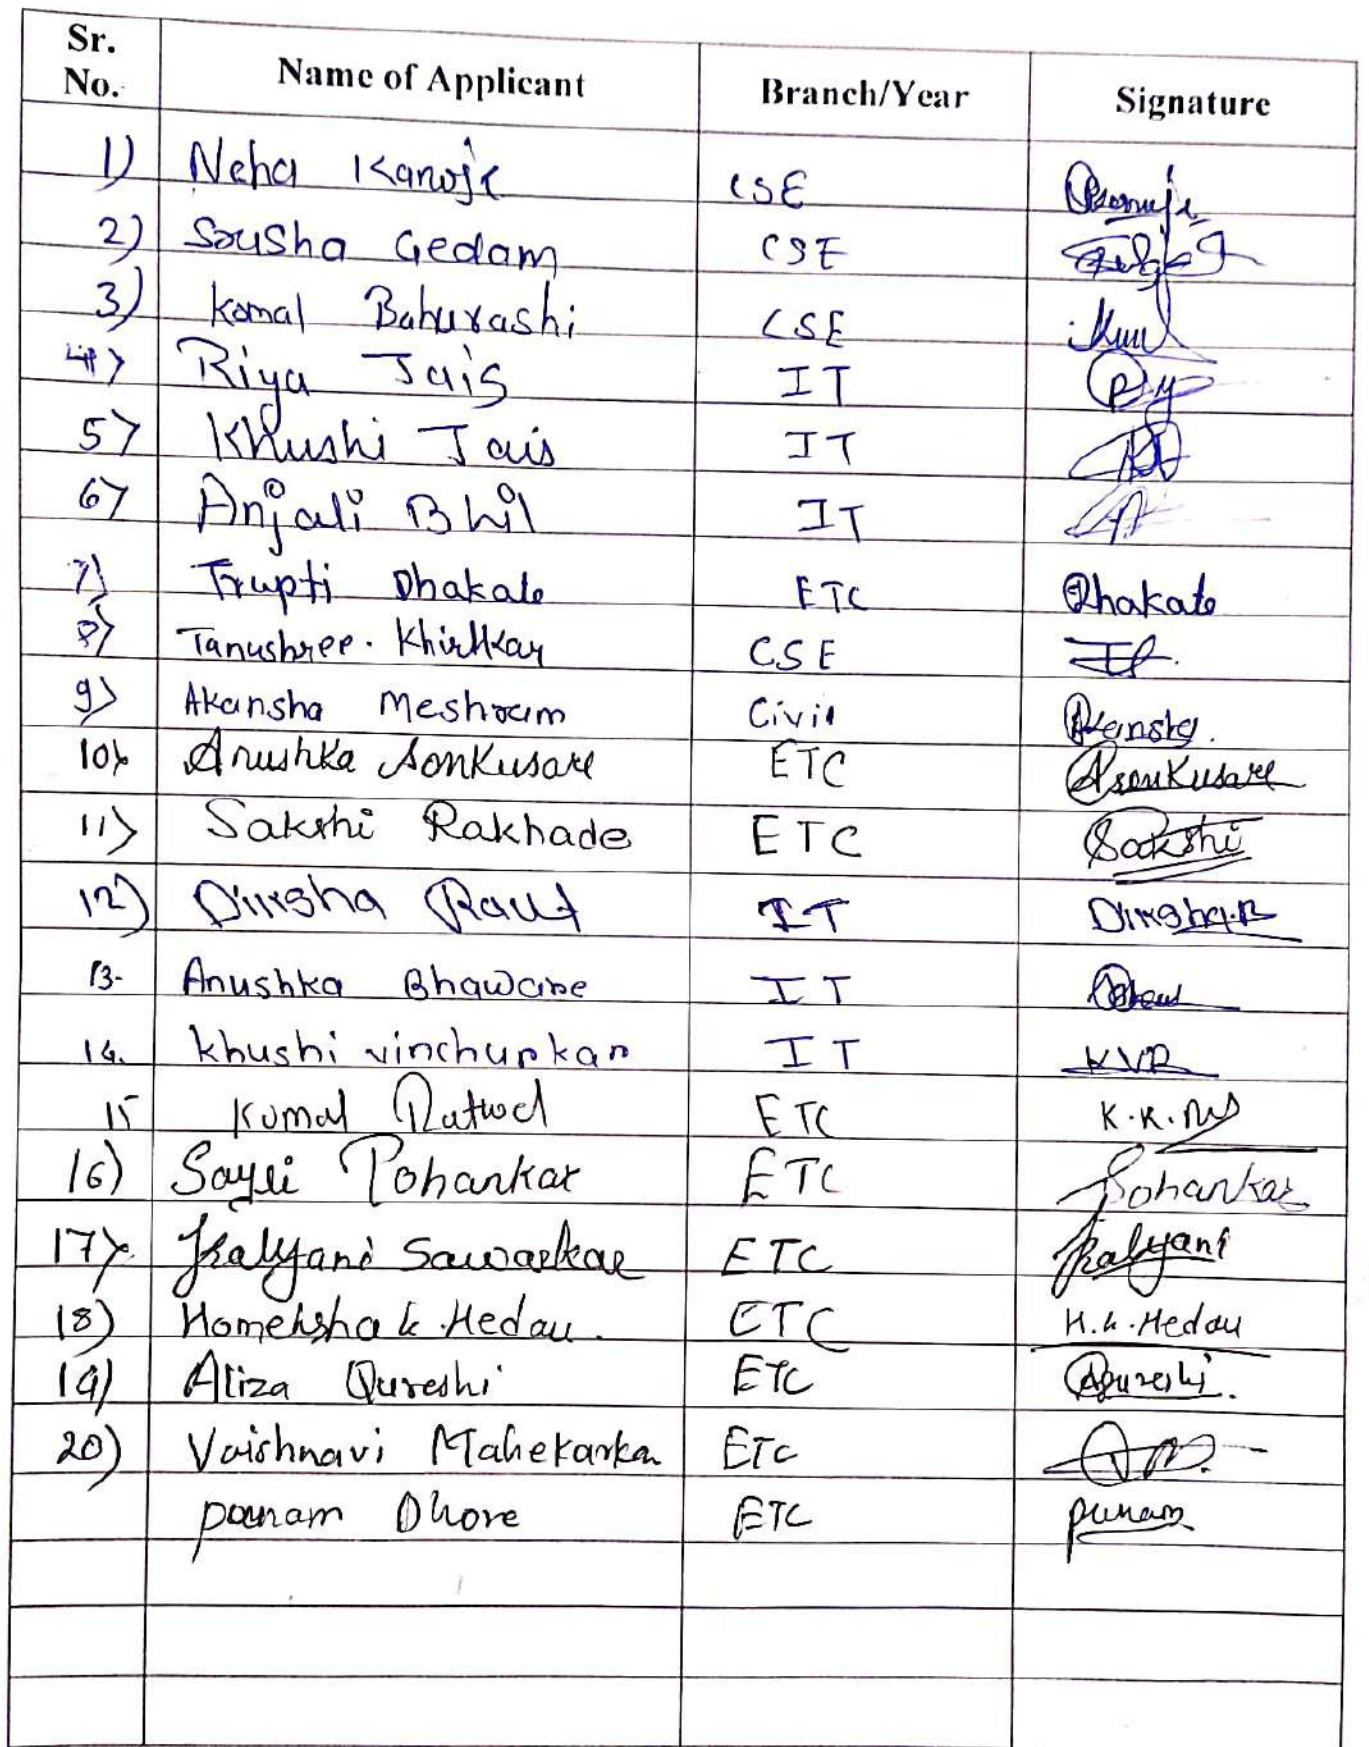 Sr. No. Name of Applicant Branch/Year Signature
1) Neha Kanoje CSE
2) Srusha Gedam CSE
3) Komal Bahurashi CSE
4) Riya Jais IT
5) Khushi Jais IT
6) Anjali Bhil IT
7) Trupti Dhakate ETC Dhakate
8) Tanushree. Khirtkar CSE
9) Akansha Meshram Civil Akansha.
10) Anushka Sonkusare ETC Asonkusare
11) Sakshi Rakhade ETC Sakshi
12) Dirksha Raut IT
13- Anushka Bhaware IT
14. Khushi vinchurkar IT KVR
15 Komal Ratwod ETC
16) Sayli Pohankar ETC Pohankar
17) Kalyani Sawarkar ETC Kalyani
18) Homeksha k. Hedau. ETC H.k.Hedau
19) Aliza Qureshi ETC AQureshi.
20) Vaishnavi Mahekarkar ETC
Poonam Dhore ETC Punam